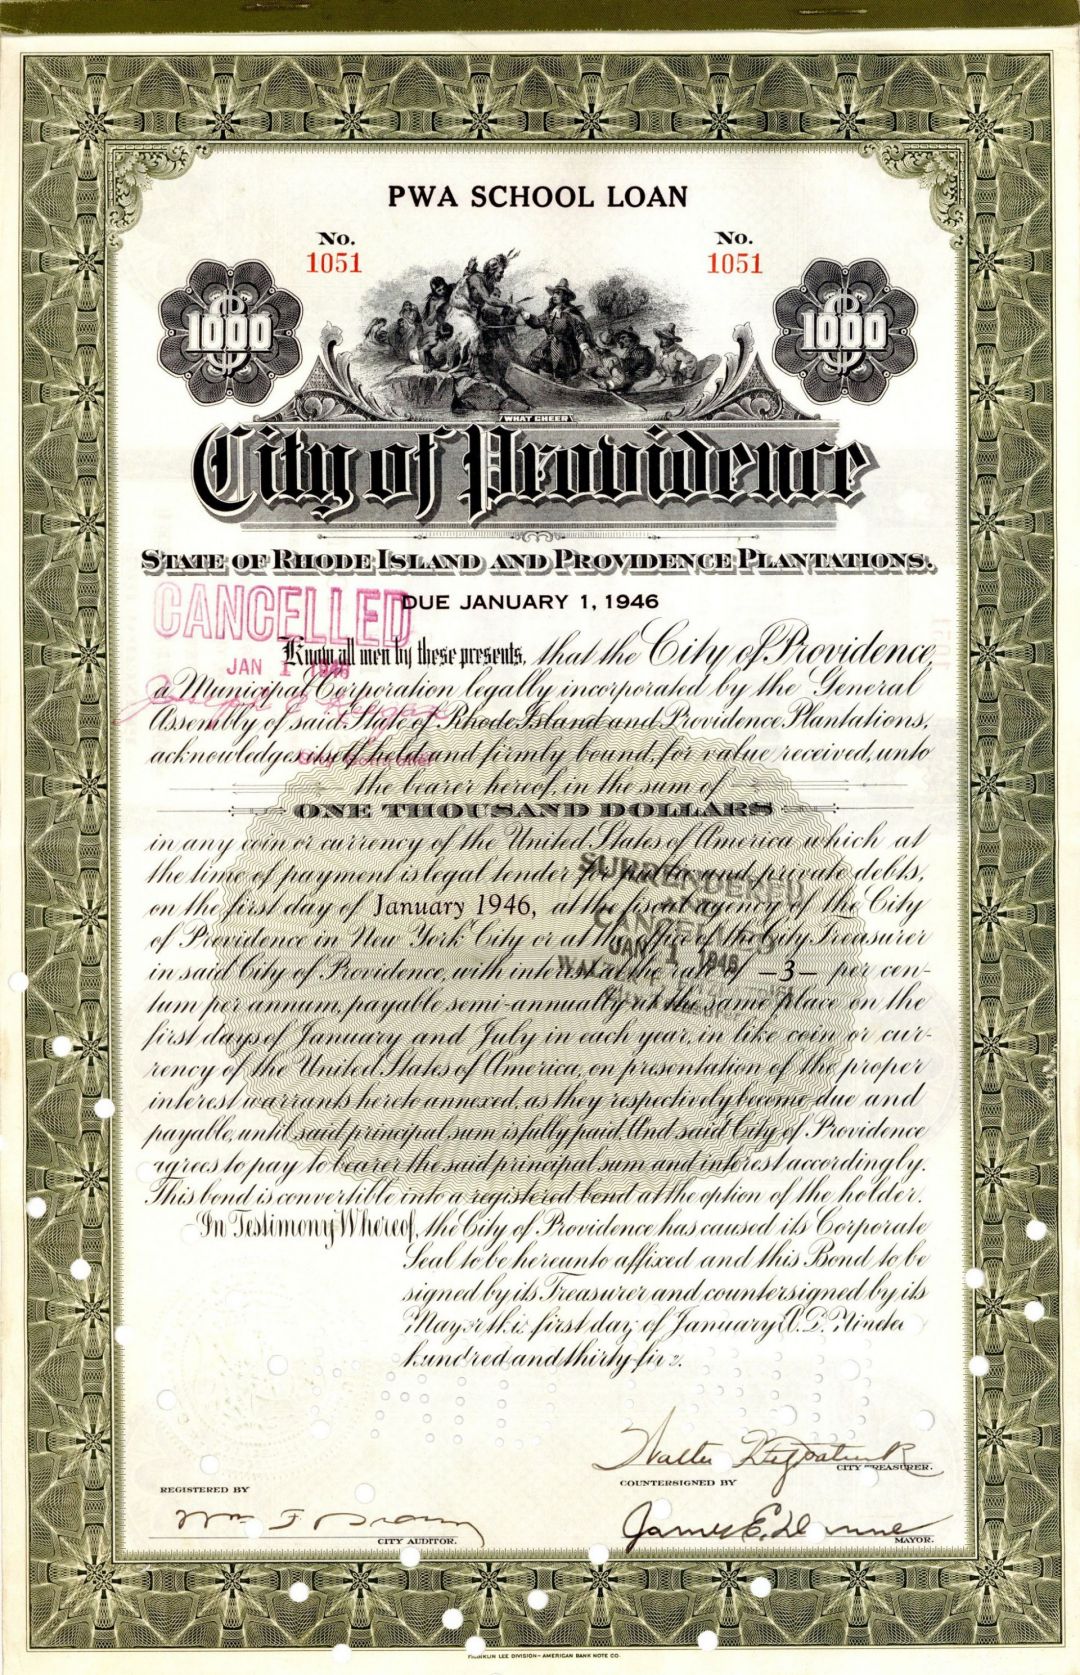 PWA SCHOOL LOAN
No. No.
1051 1051
1000 1000
WHAT CHEER
City of Providence
STATE OF RHODE ISLAND AND PROVIDENCE PLANTATIONS.
CANCELLED
DUE JANUARY 1, 1946
JAN 1 1946
Know all men by these presents, that the City of Providence,
a Municipal Corporation legally incorporated by the General
Assembly of said State of Rhode Island and Providence Plantations,
acknowledges itself held and firmly bound, for value received, unto
the bearer hereof, in the sum of
ONE THOUSAND DOLLARS
in any coin or currency of the United States of America which at
the time of payment is legal tender for public and private debts,
SURRENDERED
on the first day of January 1946, at the fiscal agency of the City
CANCELLED
of Providence in New York City or at the office of the City Treasurer
JAN 1 1946
in said City of Providence, with interest at the rate of -3- per cen-
tum per annum, payable semi-annually at the same place on the
first days of January and July in each year, in like coin or cur-
rency of the United States of America, on presentation of the proper
interest warrants hereto annexed, as they respectively become due and
payable, until said principal sum is fully paid. And said City of Providence
agrees to pay to bearer the said principal sum and interest accordingly.
This bond is convertible into a registered bond at the option of the holder.
In Testimony Whereof, the City of Providence has caused its Corporate
Seal to be hereunto affixed and this Bond to be
signed by its Treasurer and countersigned by its
Mayor this first day of January A.D. Nineteen
hundred and thirty-five.
Walter Fitzpatrick
CITY TREASURER.
REGISTERED BY COUNTERSIGNED BY
Wm F Brown James E. Dunne
CITY AUDITOR. MAYOR.
FRANKLIN LEE DIVISION - AMERICAN BANK NOTE CO.